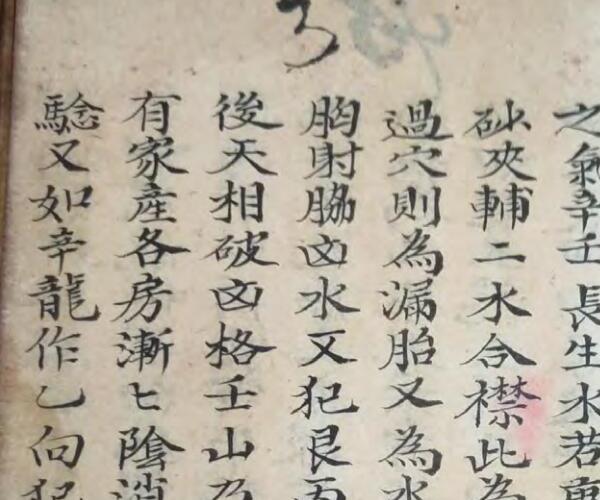 之氣辛壬長生水若
砂夾輔二水合襟此為
過穴則為漏胎又為水
胸射脇凶水又犯艮丙
後天相破凶格壬山乃
有家產各房漸匕陰消
騐又如辛龍作乙向犯